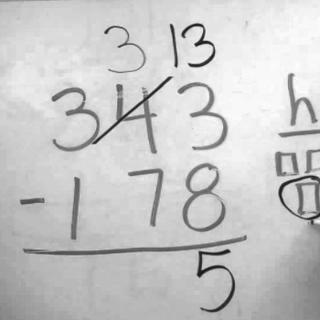 3 13
343
h
- 178
5